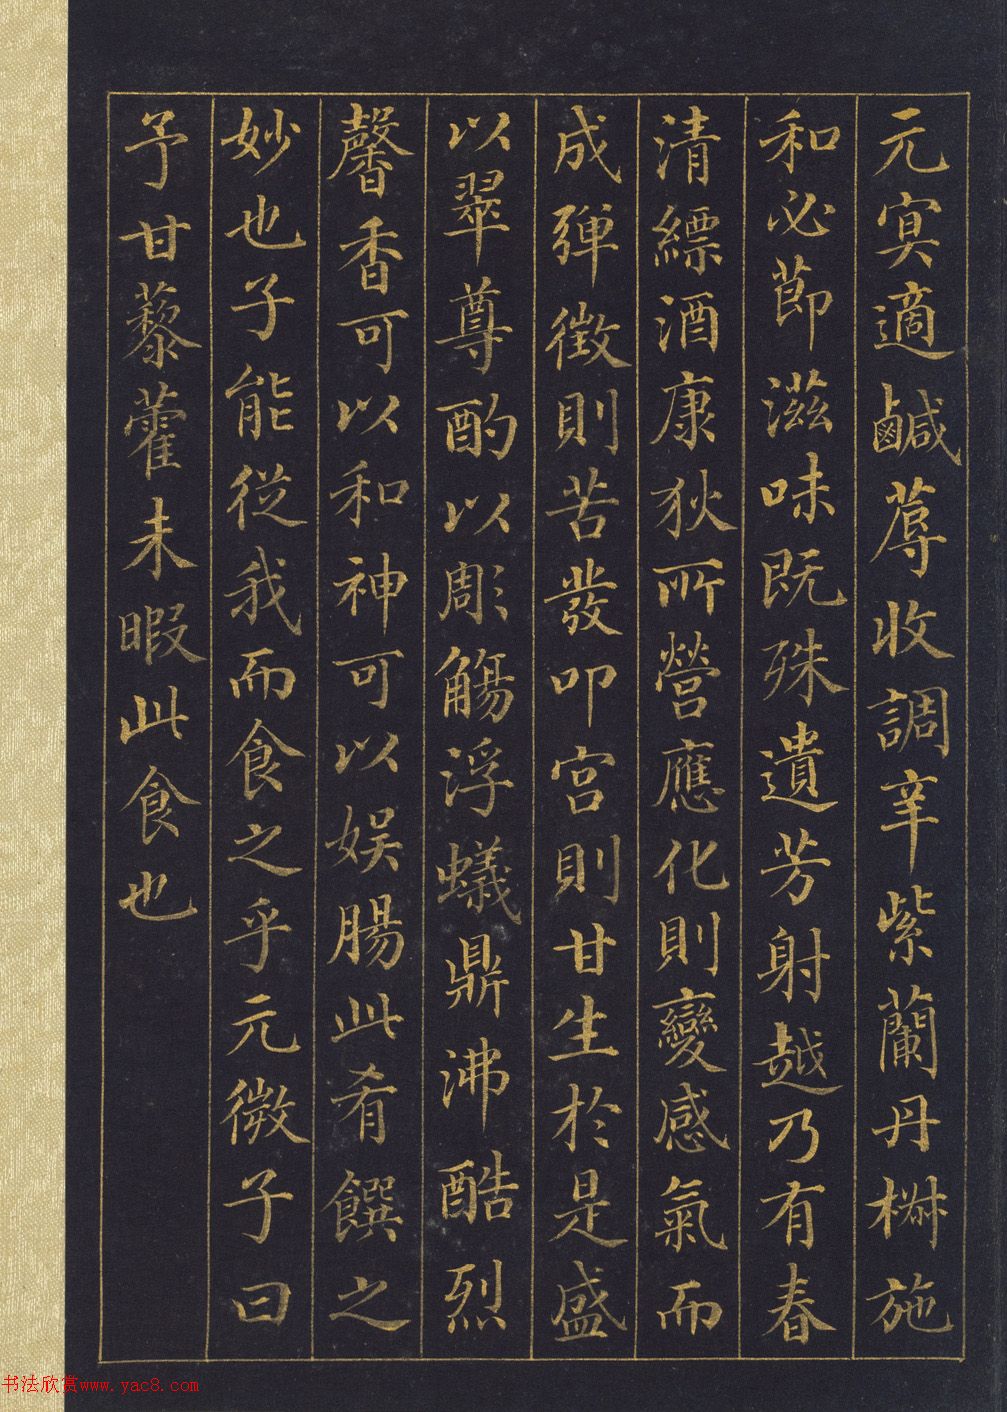 元冥適鹹蓐收調辛紫蘭丹椒施
和必節滋味既殊遺芳射越乃有春
清縹酒康狄所營應化則變感氣而
成弹徵則苦發叩宫則甘生於是盛
以翠尊酌以彫觴浮蟻鼎沸酷烈
馨香可以和神可以娱腸此肴饌之
妙也子能從我而食之乎元微子曰
予甘藜藿未暇此食也
书法欣赏www.yac8.com